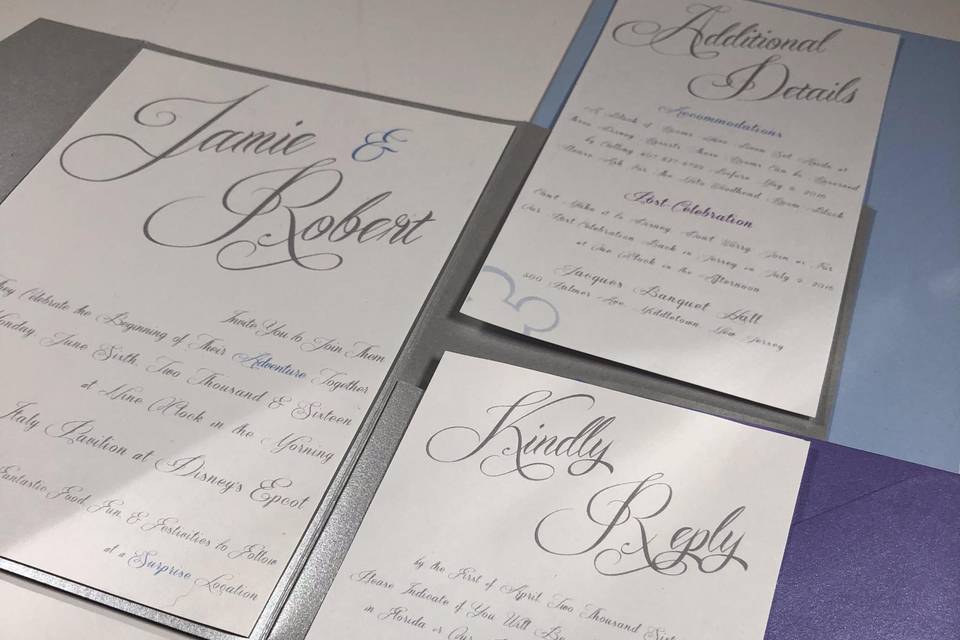 Jamie &
Robert
Invite You to Join Them
They Celebrate the Beginning of Their Adventure Together
Monday, June Sixth, Two Thousand & Sixteen
at Nine O'Clock in the Morning
Italy Pavilion at Disney's Epcot
Fantastic Food, Fun, & Festivities to Follow
at a Surprise Location
Additional
Details
Accommodations
A Block of Rooms Have Been Set Aside at
three Disney Resorts these Rooms Can be Reserved
by Calling Before May 2, 2016
Please Ask For the Woodhend Room Block
Post Celebration
Can't Make it to Disney Don't Worry Join Us For
Our Post Celebration Back in Jersey on July 9, 2016
at Two O'Clock in the Afternoon
Jacques Banquet Hall
Palmer Ave, Middletown, New Jersey
Kindly
Reply
by the First of April, Two Thousand Sixteen
Please Indicate if You Will
in Florida or Our